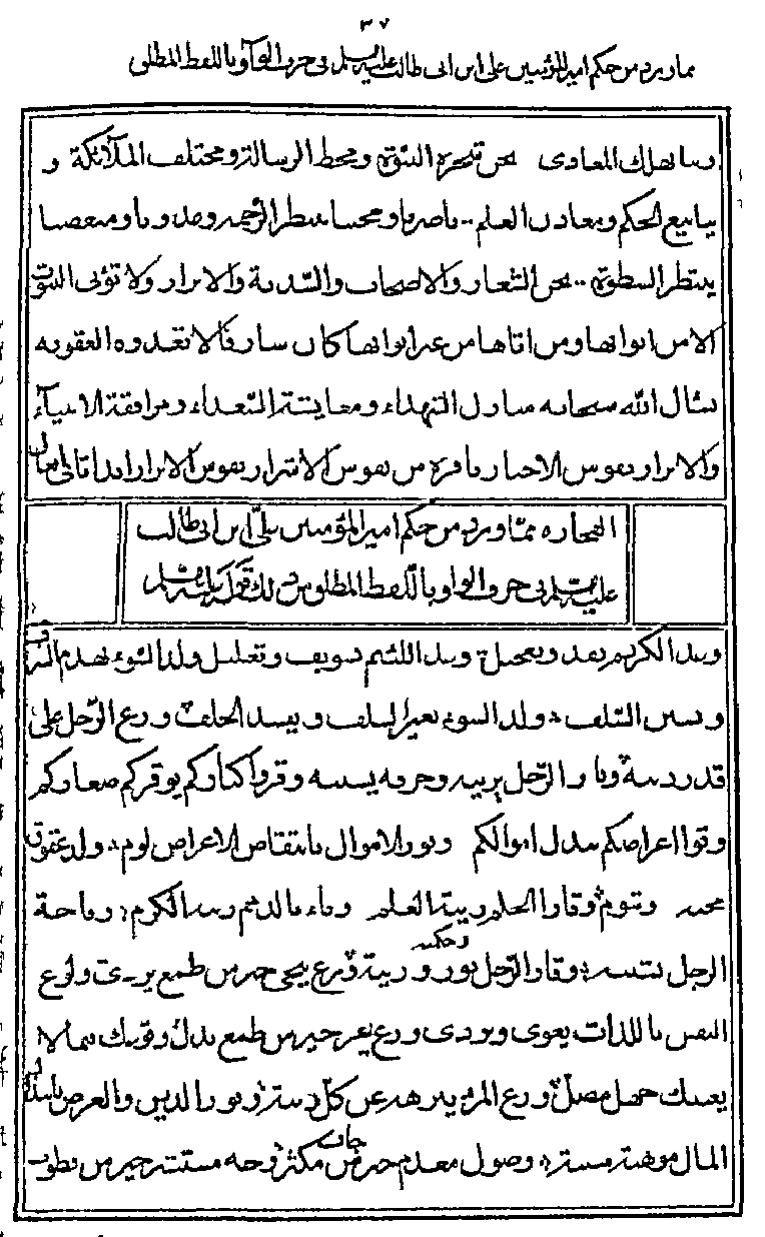 ٣٧
مما ورد من حكم امير المؤمنين على ابن ابى طالب عليه السلم فى حرف الواو باللفظ المطلق
وبنا تهلك المعادى نحن شجرة النبوة ومحط الرسالة ومختلف الملآئكة و
ينابيع الحكم ومعادن العلم .. ناصرنا ومحبنا ينتظر الرحمه وعدونا ومبغضنا
ينتظر السطوة .. نحن الشعار والاصحاب والسدنة والابواب ولا تؤتى البيوت
الا من ابوابها ومن اتاها من غير ابوابها كان سارقا لا تعدوه العقوبه
نسال الله سبحانه منازل الشهداء ومعايشة السعداء ومرافقة الانبيآء
والابرار نفوس الاخيار نافرة من نفوس الاشرار نفوس الابرار ابدا تابى
مما ورد من حكم امير المؤمنين على ابن ابى طالب
عليه السلم فى حرف الواو باللفظ المطلق من ذلك قوله عليه السلم
وعد الكريم نقد وتعجيل وعد اللئيم تسويف وتعليل ولد السوء يهدم الشرف
ويشين السلف ولد السوء يعير السلف ويفسد الخلف ورع الرجل على
قدر دينه وقار الرجل يزينه وخرقه يشينه وقروا كباركم يوقركم صغاركم
وقوا اعراضكم ببذل اموالكم وفور الاموال بانتقاص الاعراض لوم ولد عقوق
محنه وشوم وقار الحلم زينة العلم وفاء بالذمم زينه الكرم وقاحة
الرجل تشينه وقار الرجل نور وزينة ورع ينجى خير من طمع يردى ولوع
النفس باللذات يغوى ويردى ورع يعز خير من طمع يذل وقوعك فيما لا
يعنيك جهل مضل ورع المرء ينزهه عن كل دنية وفور الدين والعرض
المال موهبة سنية وصول معدم خير من جاف مكثر وجه مستبشر خير من قطوب